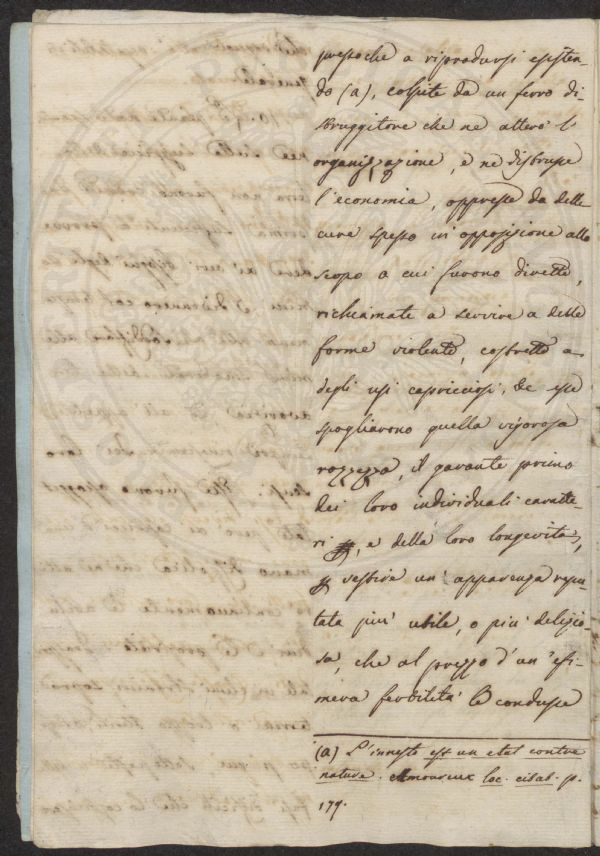 pressoché a riprodursi esisten-
do (a), colpite da un ferro di-
struggitore che ne alterò l'
organizzazione, e ne distrusse
l'economia, oppresse da delle
cure spesso in opposizione allo
scopo a cui furono dirette,
richiamate a servire a delle
forme violente, costrette a
degli usi capricciosi, se essi
spogliarono quella vigorosa
rozzezza, il garante primo
dei loro individuali caratte-
ri, e della loro longevità,
vestire un' apparenza repu-
tata piu' utile, o piu' delizio-
sa, che al prezzo d'un' efi-
mera fertilità le condusse
(a) L'innesto est un etat contre
nature. Amoureux loc. citat. p.
179.